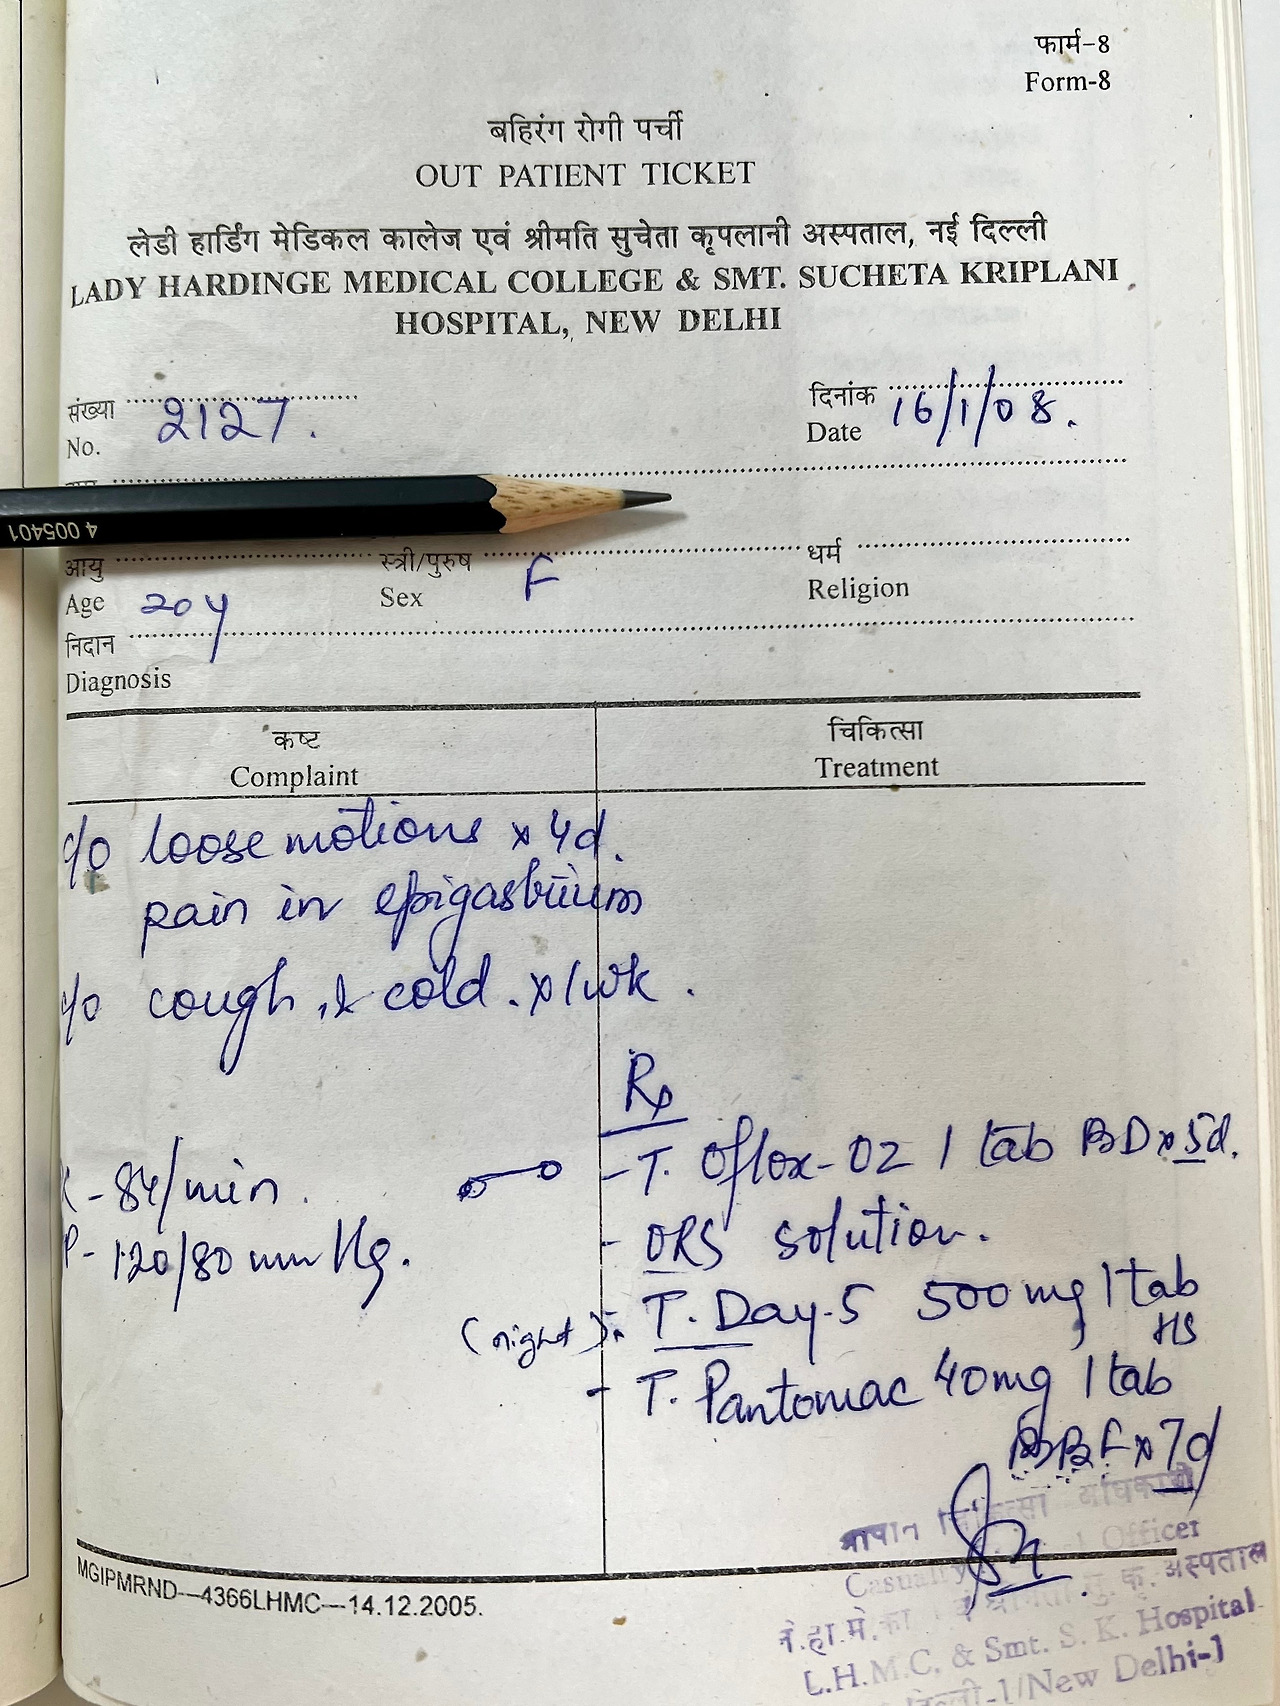 फार्म-8
Form-8
बहिरंग रोगी पर्ची
OUT PATIENT TICKET
लेडी हार्डिंग मेडिकल कालेज एवं श्रीमति सुचेता कृपलानी अस्पताल, नई दिल्ली
LADY HARDINGE MEDICAL COLLEGE & SMT. SUCHETA KRIPLANI
HOSPITAL, NEW DELHI
संख्या
No. 2127.
दिनांक
Date 16/1/08.
4 005401
आयु
Age 20y
स्त्री/पुरुष
Sex F
धर्म
Religion
निदान
Diagnosis
कष्ट
Complaint
चिकित्सा
Treatment
c/o loose motions x 4d.
pain in epigastrium
c/o cough & cold. x 1wk.
Rx
- 84/min.
- T. Oflox-OZ 1 tab BD x 5d.
- ORS solution.
P- 120/80 mm Hg.
(night) - T. Day-5 500mg 1 tab
HS
- T. Pantomac 40mg 1 tab
BBF x 7d
चिकित्सा
Officer
Casualty
अस्पताल
L.H.M.C. & Smt. S. K. Hospital
-1/New Delhi-1
MGIPMRND—4366LHMC—14.12.2005.